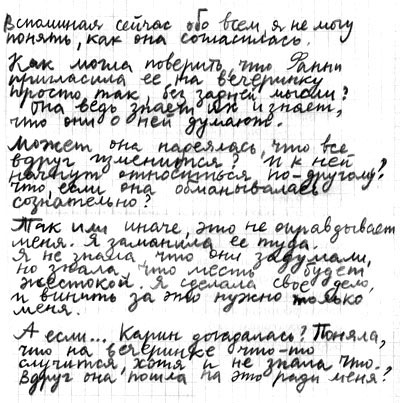 Вспоминая сейчас обо всем, я не могу
понять, как она согласилась.
Как могла поверить, что Фанни
пригласила ее на вечеринку
просто так, без задней мысли?
Она ведь знает их и знает,
что они о ней думают.
Может она надеялась, что все
вдруг изменится? И к ней
начнут относиться по-другому?
Что, если она обманывалась
сознательно?
Так или иначе, это не оправдывает
меня. Я заманила ее туда.
Я не знала что они задумали,
но знала, что месть будет
жестокой. Я сделала свое дело,
и винить за это нужно только
меня.
А если... Карин догадалась? Поняла,
что на вечеринке что-то
случится, хотя и не знала что.
Вдруг она пошла на это ради меня?